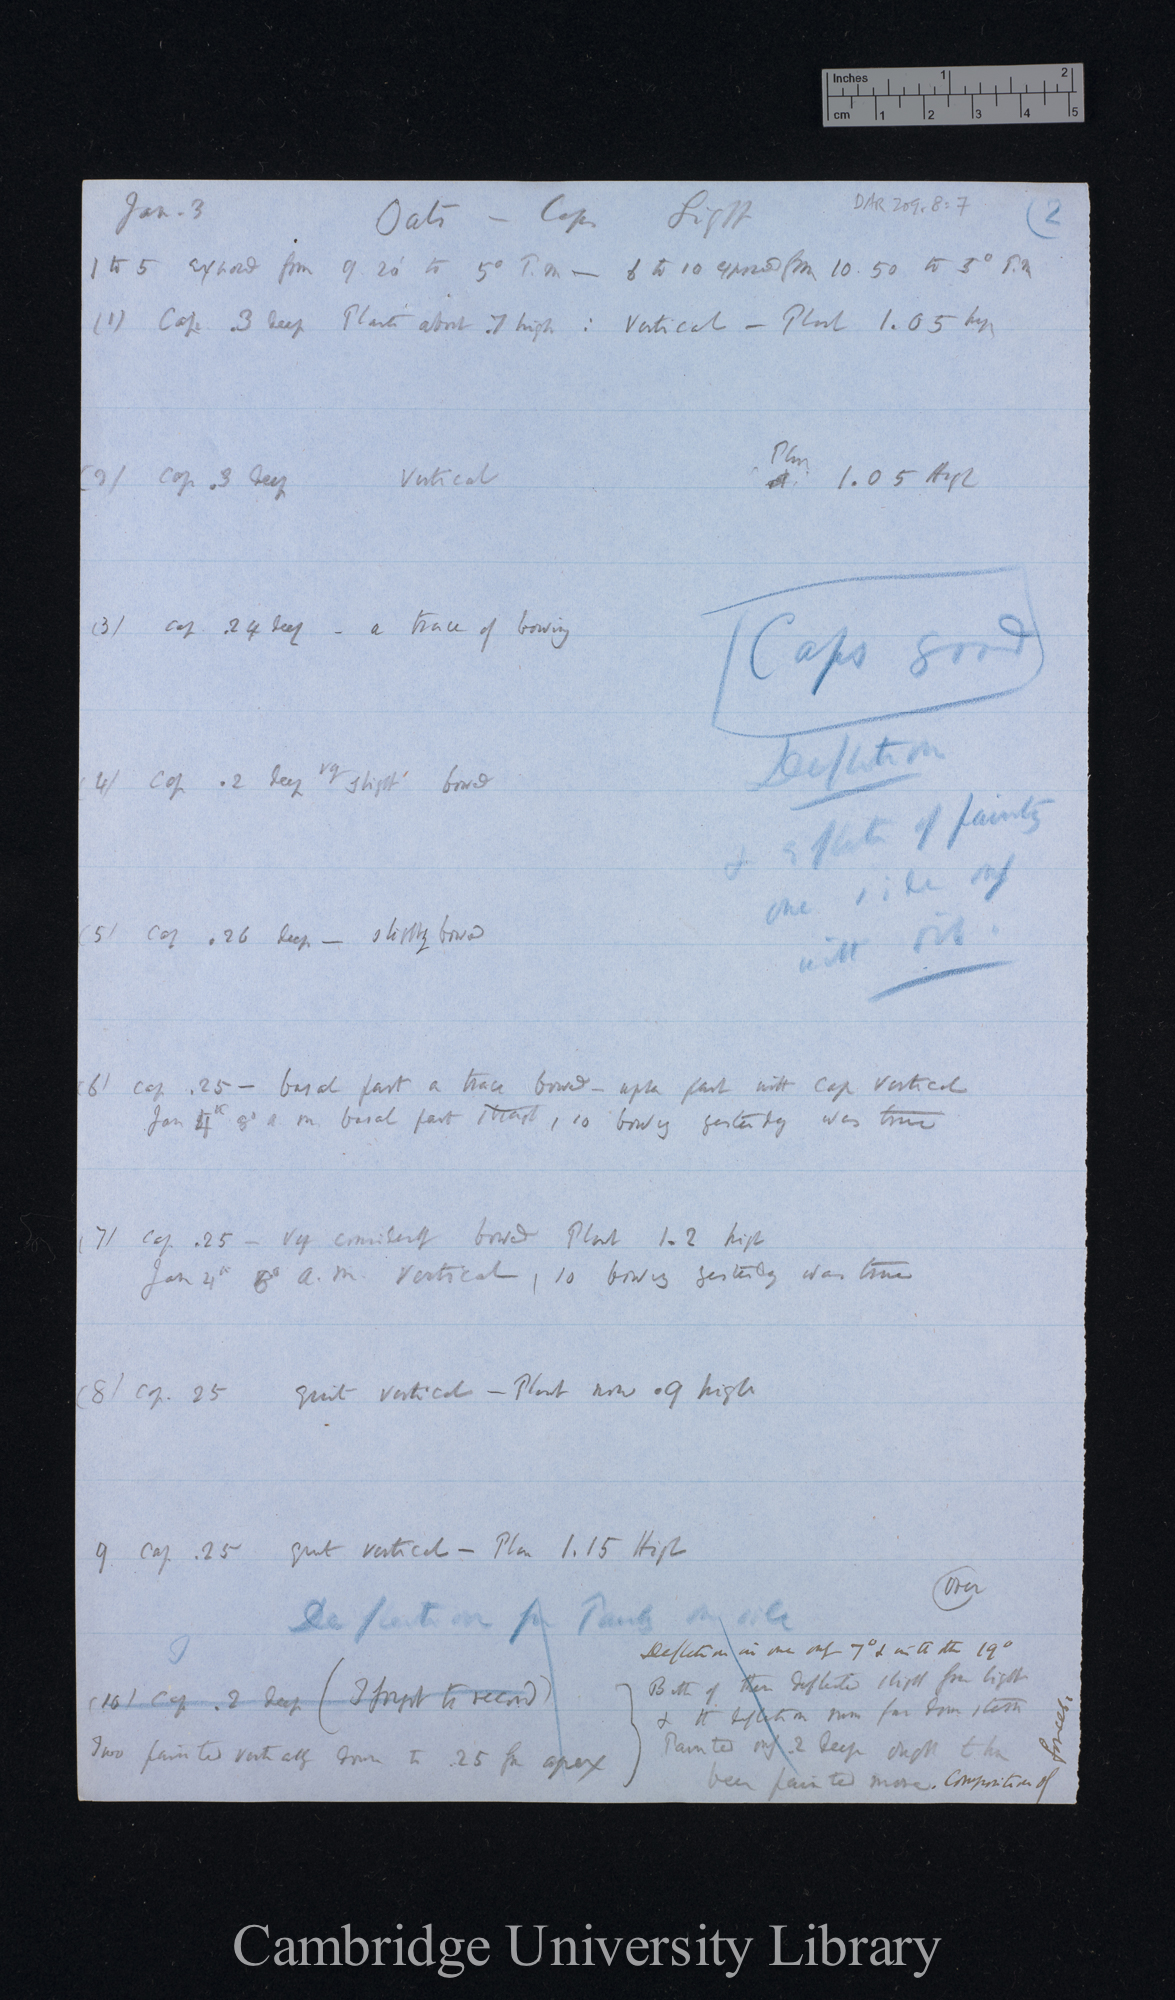 Inches 1 2
cm 1 2 3 4 5
Jan. 3 Oats — Caps Light DAR 209.8:7 (2
1 to 5 exposed from 9 20' to 5° P.m — 6 to 10 exposed from 10. 50 to 5° P.m
(1) Cap .3 deep Plant about .7 high : Vertical — Plant 1.05 high
(2) Cap .3 deep Vertical Plant 1.05 High
(3) cap .24 deep — a trace of bowing
Caps good
Deflection
(4) Cap .2 deep vy slight bowed
& effects of painting
one side only
(5) Cap .26 deep — slightly bowed
with oils.
(6) cap .25 — basal part a trace bowed — upper part with cap vertical
Jan 4th 8° a.m. basal part straight, so bowing yesterday was true
(7) cap .25 — vy considerably bowed Plant 1.2 high
Jan 4th 8° a.m. Vertical, so bowing yesterday was true
(8) Cap. 25 quite vertical — Plant now .9 high
9 cap .25 quite vertical — Plant 1.15 High
over
Deflection from Painting on side
Deflection in one only 7° & in the other 19°
(10) Cap .2 deep (I forgot to record)
Both of them deflected slightly from light
& the deflection runs far down
Two painted vertically down to .25 from apex
Painted only .2 deep ought to have
been painted more. Composition of
forces.
Cambridge University Library